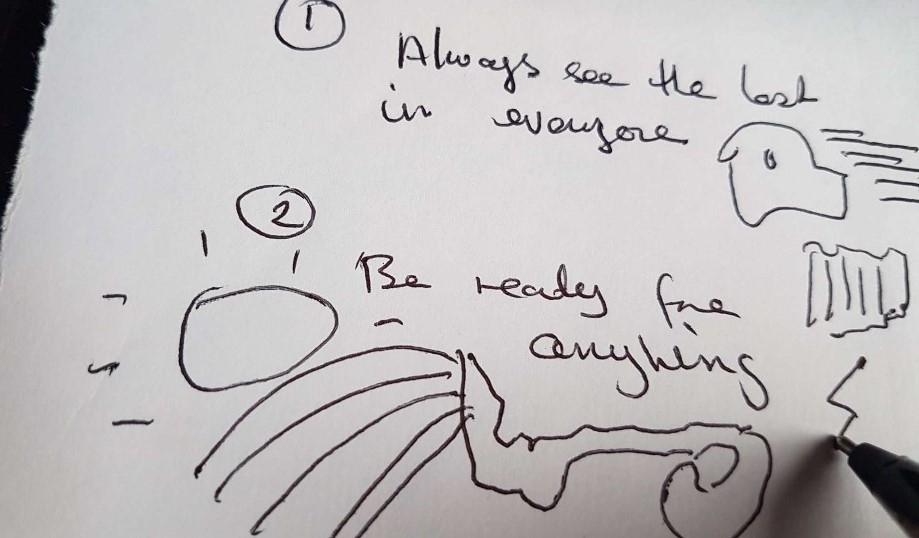 1
Always see the best
in everyone
2
Be ready for
anything